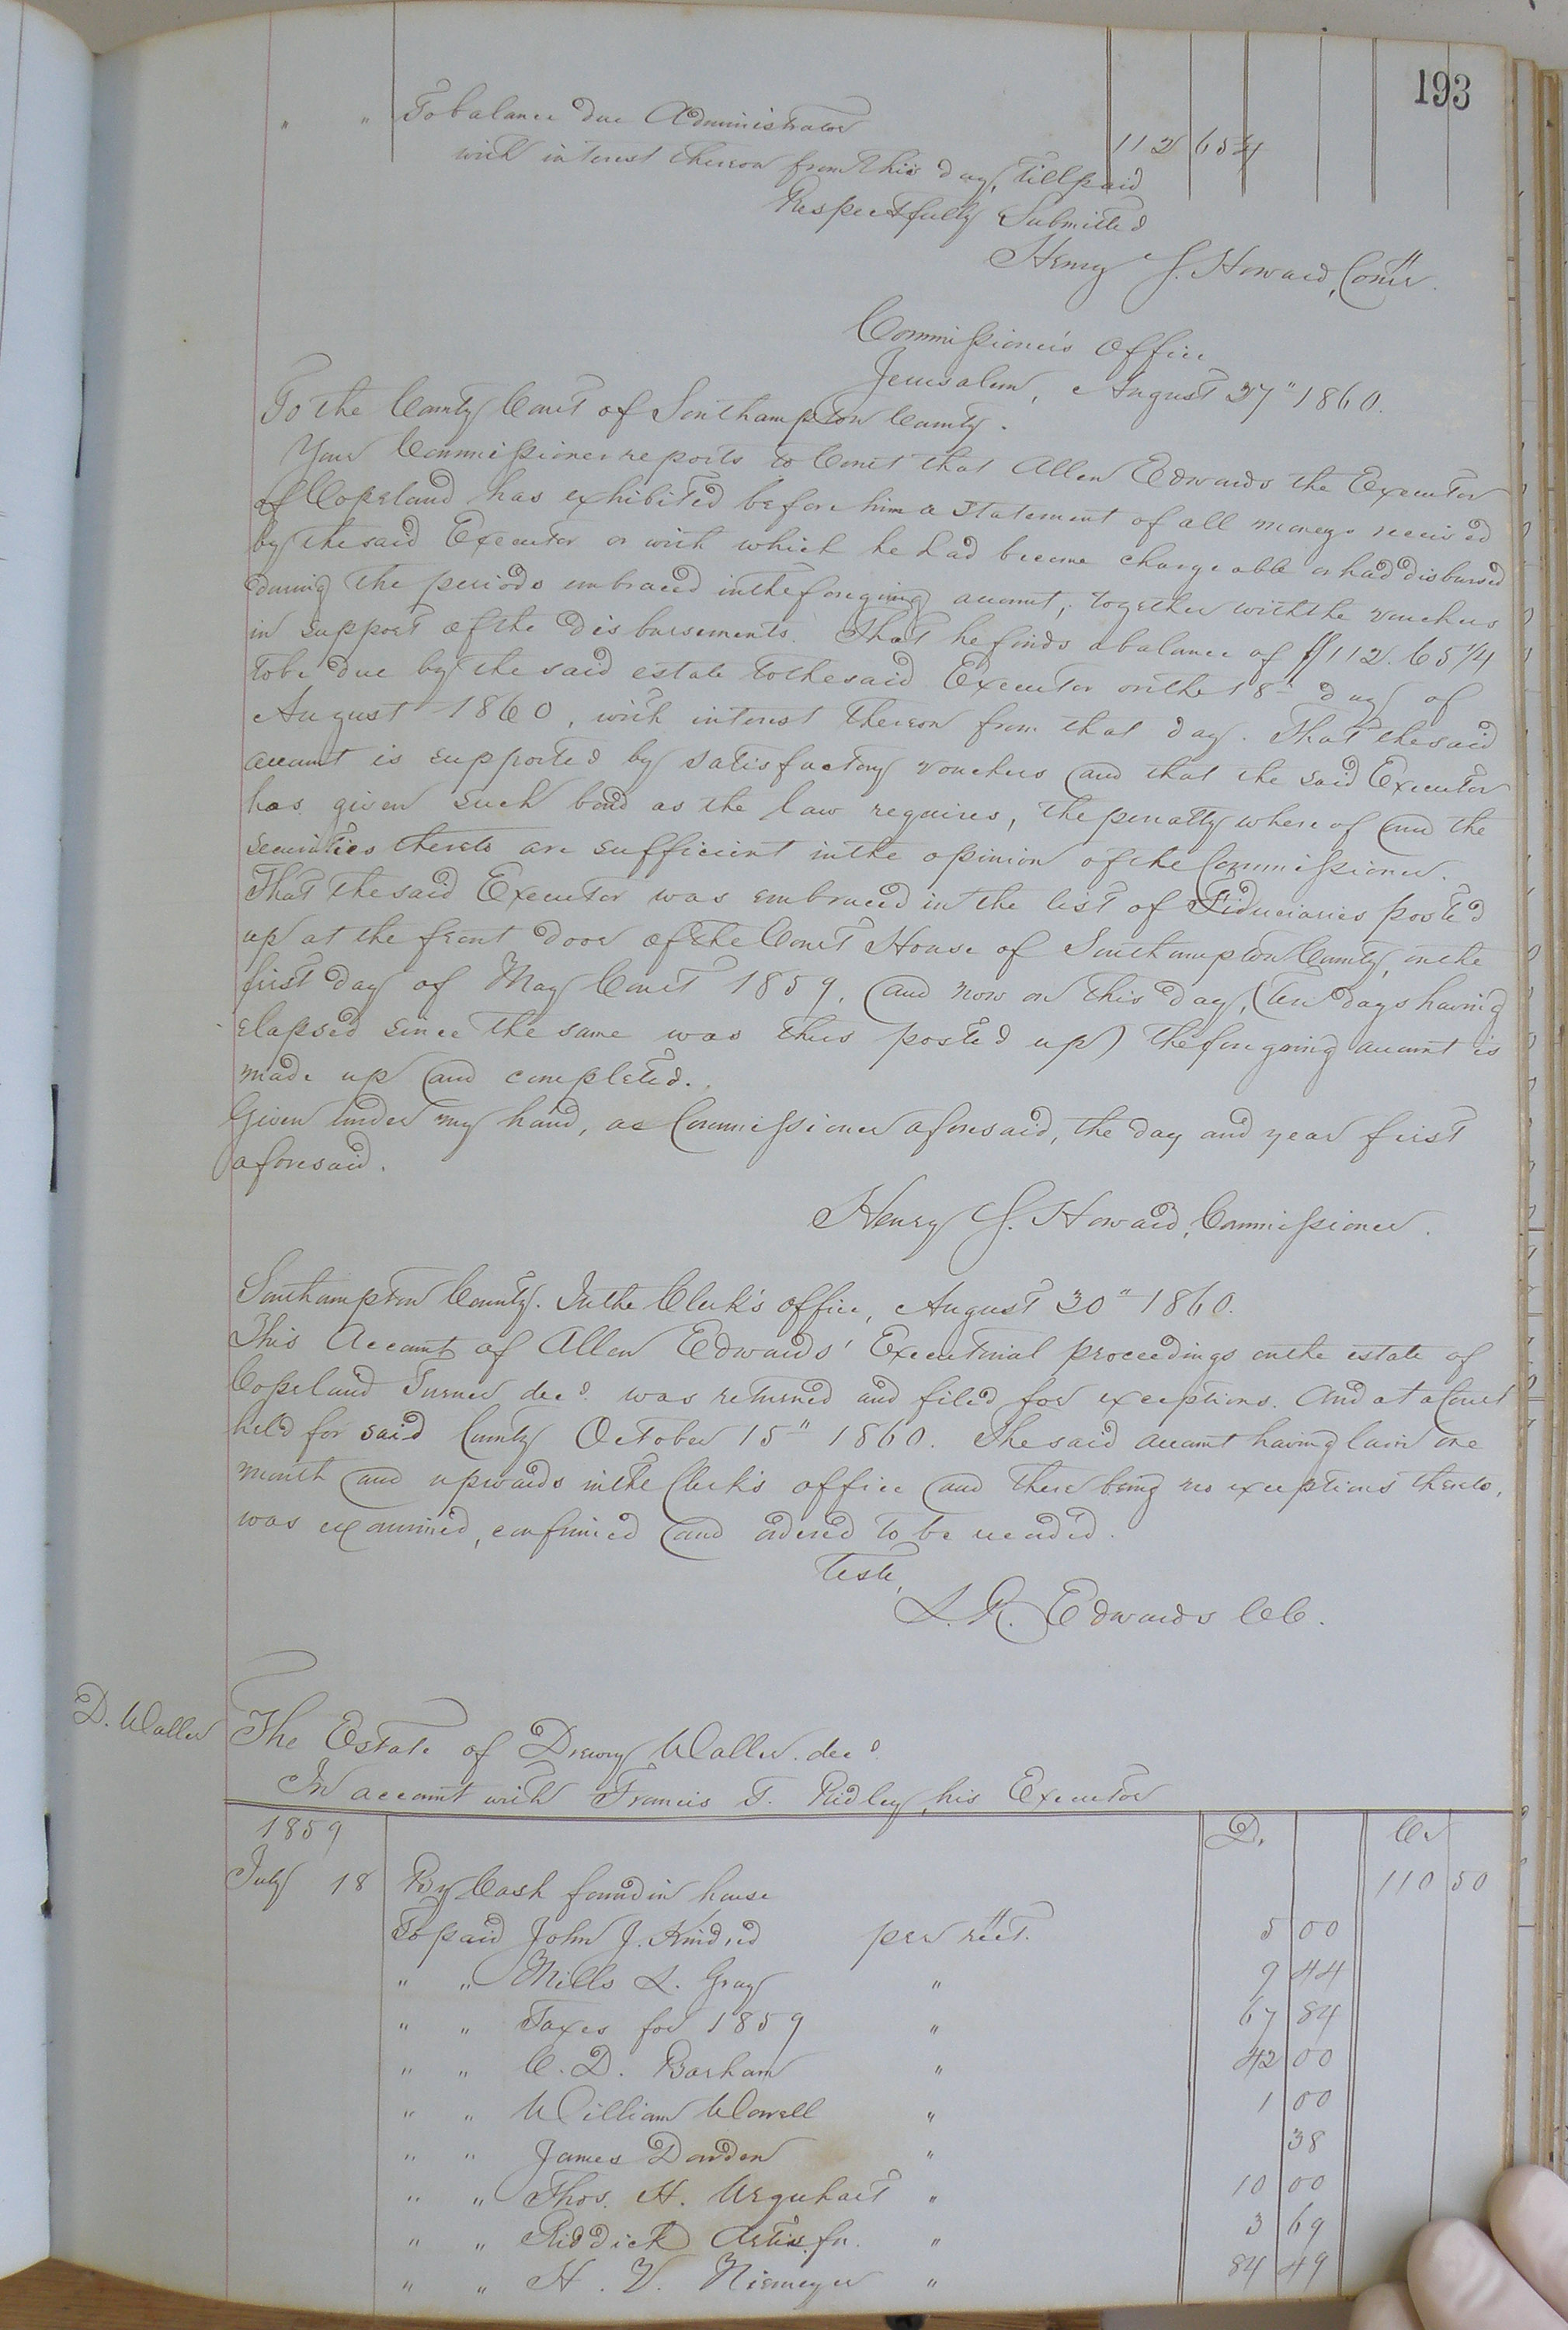 193
" " To balance due Administrator 112 65¼
with interest thereon from this day, till paid
Respectfully Submitted
Henry S. Howard, Comr.
Commissioner's Office
Jerusalem, August 27" 1860.
To the County Court of Southampton County.
Your Commissioner reports to Court that Allen Edwards the Executor
of Copeland has exhibited before him a statement of all moneys received
by the said Executor or with which he had become chargeable or had disbursed
during the periods embraced in the foregoing account, together with the vouchers
in support of the disbursements. That he finds a balance of $112.65¼
to be due by the said estate to the said Executor on the 18" day of
August 1860, with interest thereon from that day. That the said
account is supported by satisfactory vouchers and that the said Executor
has given such bond as the law requires, the penalty whereof and the
securities thereto are sufficient in the opinion of the Commissioner.
That the said Executor was embraced in the list of Fiduciaries posted
up at the front door of the Court House of Southampton County, on the
first day of May Court 1859, and now on this day, (ten days having
elapsed since the same was thus posted up) the foregoing account is
made up and completed.
Given under my hand, as Commissioner aforesaid, the day and year first
aforesaid.
Henry S. Howard, Commissioner.
Southampton County. In the Clerk's office, August 30" 1860.
This Account of Allen Edwards' Executorial proceedings on the estate of
Copeland Turner decd. was returned and filed for exceptions. And at a Court
held for said County October 15" 1860. The said account having lain one
month and upwards in the Clerk's office and there being no exceptions thereto,
was examined, confirmed and ordered to be recorded.
Teste,
L. R. Edwards CC.
D. Waller
The Estate of Drewry Waller. decd.
In account with Francis T. Ridley, his Executor
1859 D. Cr
July 18 By Cash found in house 110 50
To paid John J. Kindred per rect. 5 00
" " Mills L. Gray " 9 44
" " Taxes for 1859 " 67 84
" " C. D. Barham " 42 00
" " William Worrell " 1 00
" " James Darden " 38
" " Thos. H. Urquhart " 10 00
" " Riddick " 3 69
" " H. V. Niemeyer " 84 49